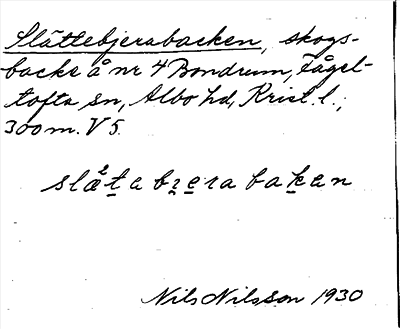 Slättebjerabacken, skogs-
backe å nr 4 Bondrum, Fågel-
tofts sn, Albo hd, Krist. l.;
300 m. V 5.
slæ²ta bɀera bakan
Nils Nilsson 1930